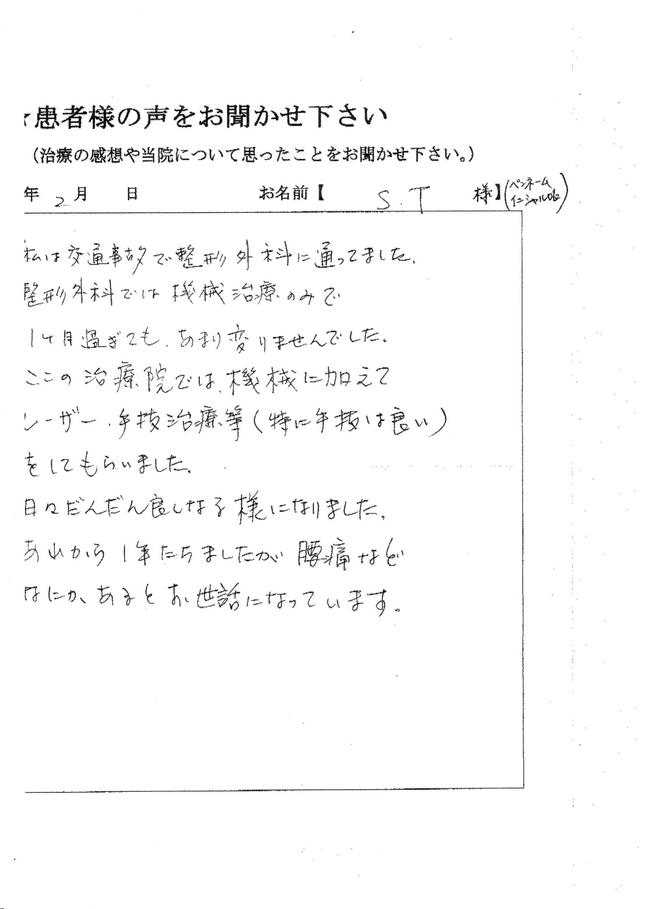 患者様の声をお聞かせ下さい
(治療の感想や当院について思ったことをお聞かせ下さい。)
年 2月 日 お名前【 S.T 様】(ペンネーム イニシャルOK)
私は交通事故で整形外科に通ってました。
整形外科では機械治療のみで
1ヶ月過ぎても、あまり変りませんでした。
ここの治療院では、機械に加えて
レーザー・手技治療等(特に手技は良い)
をしてもらいました。
日々だんだん良くなる様になりました。
あれから1年たちましたが腰痛など
なにかあるとお世話になっています。